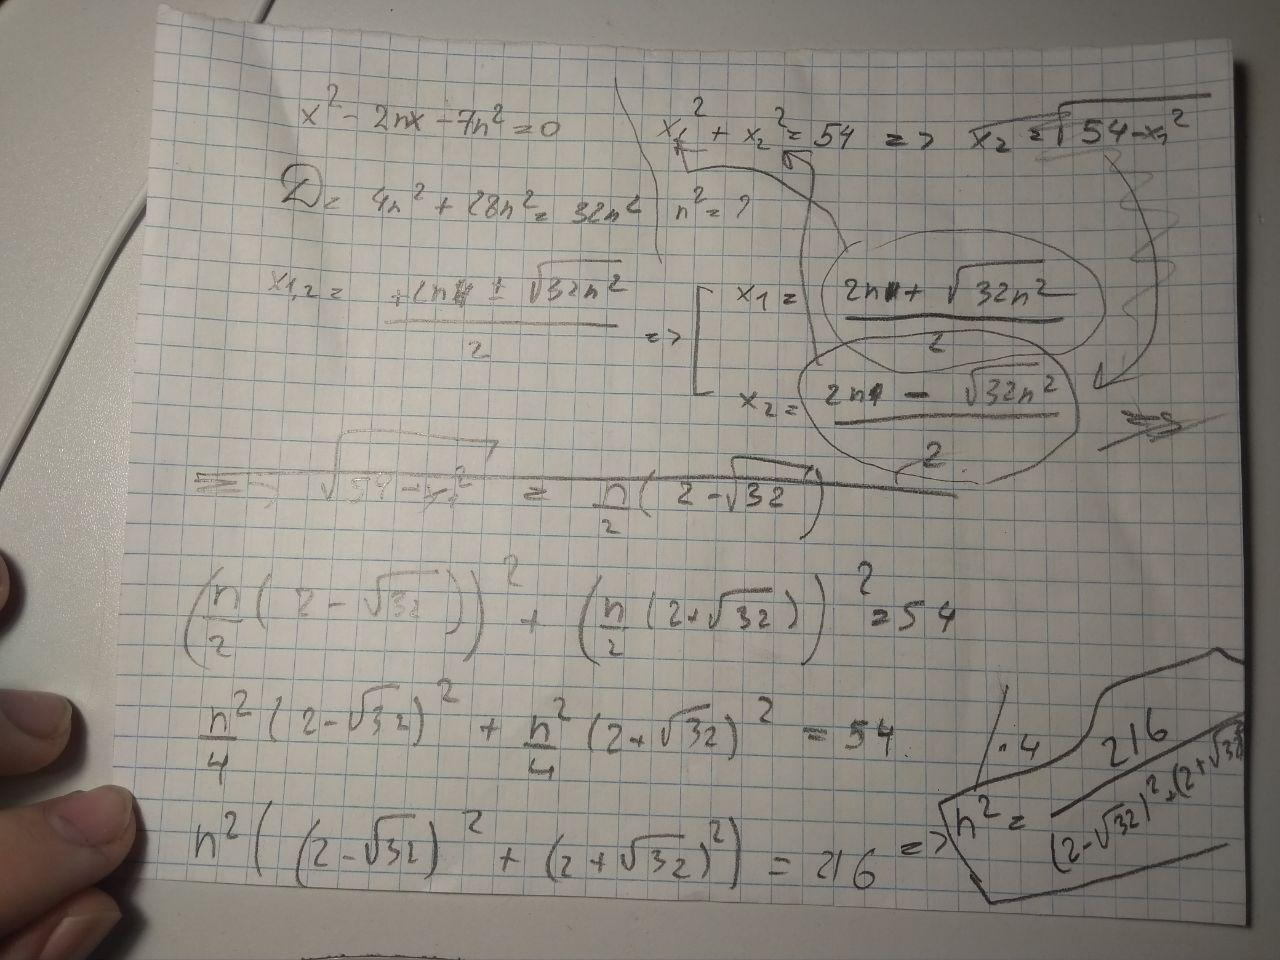 x² - 2nx - 7n² = 0
x₁² + x₂² = 54 => x₂ = √54-x₁²
D = 4n² + 28n² = 32n²
n² = ?
x₁,₂ = +2n ± √32n² / 2 =>
x₁ = 2n + √32n² / 2
x₂ = 2n - √32n² / 2
=> √54-x₁² = n/2 (2-√32)
(n/2 (2-√32))² + (n/2 (2+√32))² = 54
n²/4 (2-√32)² + n²/4 (2+√32)² = 54 / ·4
n² ((2-√32)² + (2+√32)²) = 216 => n² = 216 / (2-√32)²+(2+√32